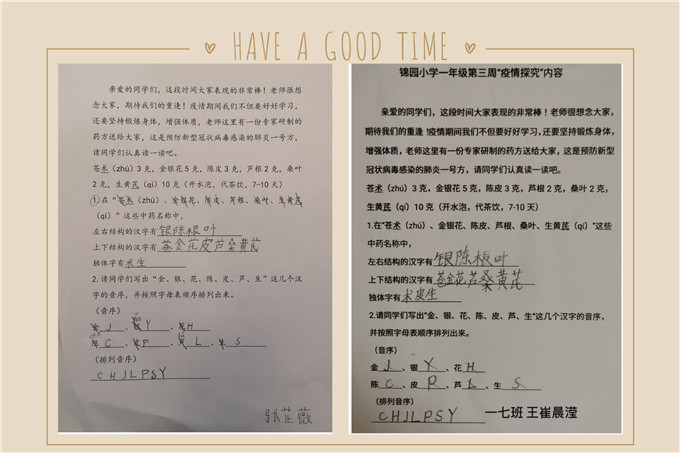 HAVE A GOOD TIME
亲爱的同学们，这段时间大家表现的非常棒！老师很想
念大家，期待我们的重逢！疫情期间我们不但要好好学习，
还要坚持锻炼身体，增强体质，老师这里有一份专家研制的
药方送给大家，这是预防新型冠状病毒感染的肺炎一号方，
请同学们认真读一读吧。
苍术（zhú）3克，金银花5克，陈皮3克，芦根2克，桑叶
2克，生黄芪（qí）10克（开水泡，代茶饮，7-10天）
①在“苍术（zhú）、金银花、陈皮、芦根、桑叶、生黄芪
（qí）”这些中药名称中，
左右结构的汉字有银陈根叶
上下结构的汉字有苍金花皮芦桑黄芪
独体字有术生
2.请同学们写出“金、银、花、陈、皮、芦、生”这几个汉
字的音序，并按照字母表顺序排列出来。
（音序）
金J、银Y、花H
陈C、皮P、芦L、生S
（排列音序）
CHJLPSY
张芷薇
锦园小学一年级第三周“疫情探究”内容
亲爱的同学们，这段时间大家表现的非常棒！老师很想念大家，
期待我们的重逢！疫情期间我们不但要好好学习，还要坚持锻炼身体，
增强体质，老师这里有一份专家研制的药方送给大家，这是预防新型
冠状病毒感染的肺炎一号方，请同学们认真读一读吧。
苍术（zhú）3克，金银花5克，陈皮3克，芦根2克，桑叶2克，
生黄芪（qí）10克（开水泡，代茶饮，7-10天）
1.在“苍术（zhú）、金银花、陈皮、芦根、桑叶、生黄芪（qí）”这些
中药名称中，
左右结构的汉字有银陈根叶
上下结构的汉字有苍金花芦桑黄芪
独体字有术皮生
2.请同学们写出“金、银、花、陈、皮、芦、生”这几个汉字的音序，
并按照字母表顺序排列出来。
（音序）
金J、银Y、花H
陈C、皮P、芦L、生S
（排列音序）
CHJLPSY
一七班 王崔晨滢